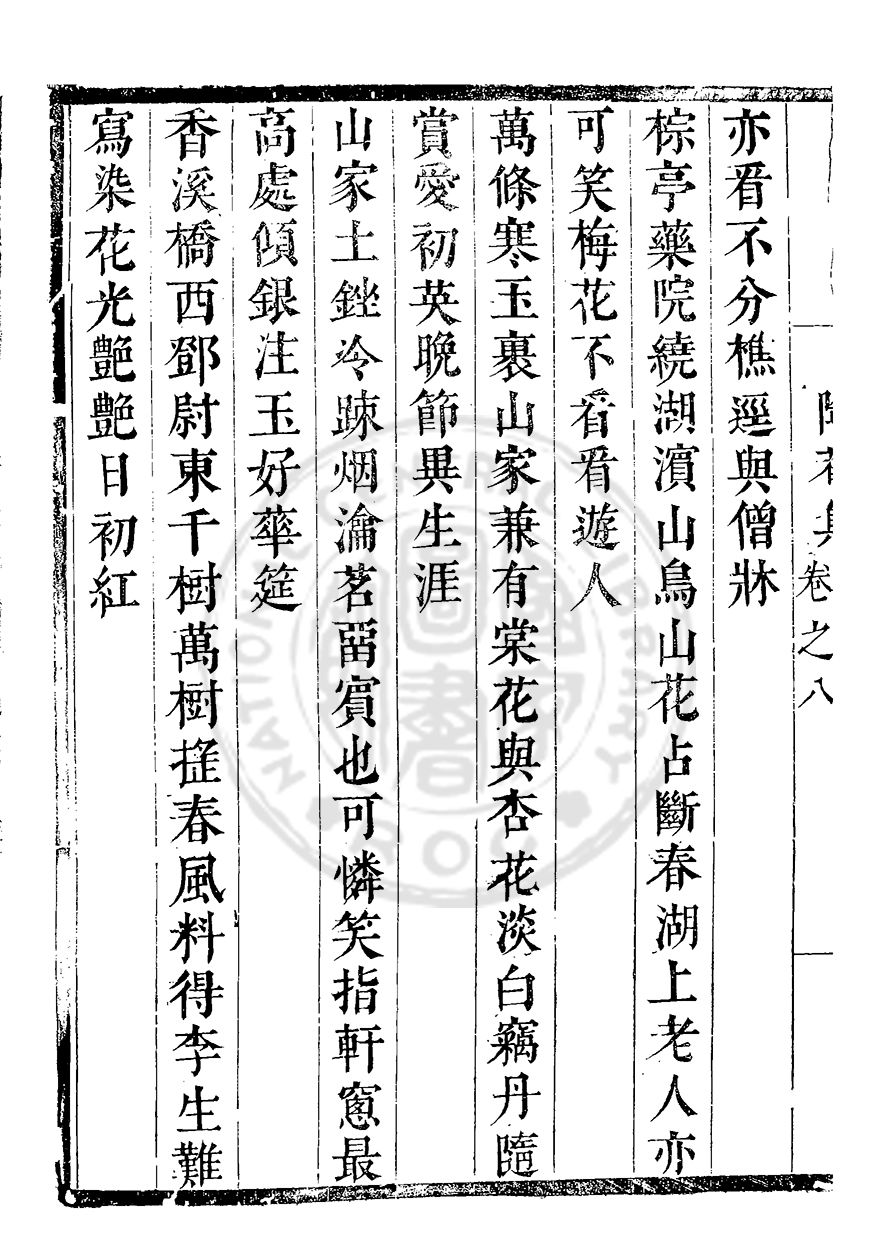 卷之八
亦看不分樵逕與僧牀
棕亭藥院繞湖濵山鳥山花占斷春湖上老人亦
可笑梅花不看看遊人
萬條寒玉裹山家兼有棠花與杏花淡白竊丹隨
賞愛初英晚節異生涯
山家土銼冷踈烟瀹茗畱賓也可憐笑指軒窻最
高處傾銀注玉好華筵
香溪橋西鄧尉東千樹萬樹搓春風料得李生難
寫染花光艷艷日初紅